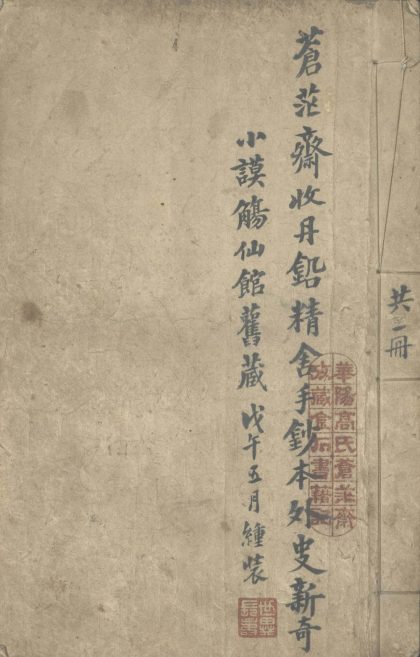 共一冊
蒼茫齋收丹鉛精舍手鈔本外史新奇
小謨觴仙館舊藏 戊午五月緟裝
華陽高氏蒼茫齋
攷藏金石書籍記
世異